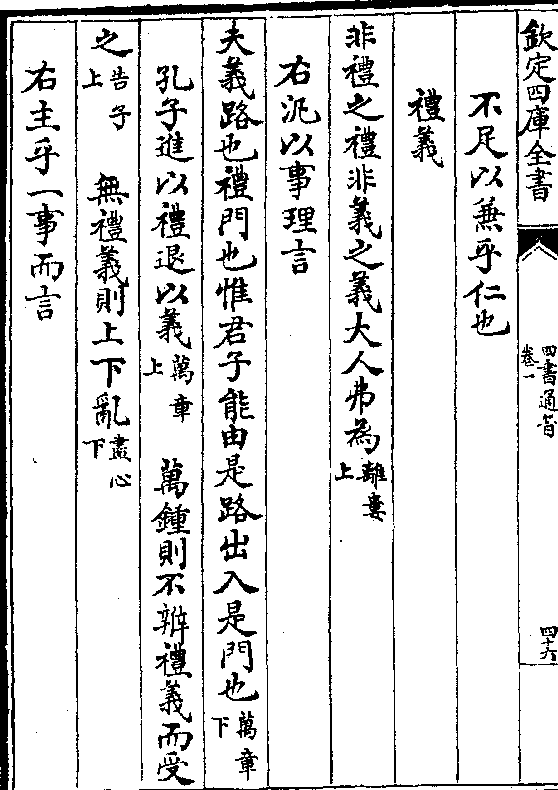 欽定四庫全書
四書通旨
卷一
四十六
不足以兼乎仁也
禮義
非禮之禮非義之義大人弗為離婁上
右汎以事理言
夫義路也禮門也惟君子能由是路出入是門也萬章下
孔子進以禮退以義萬章上 萬鍾則不辨禮義而受
之告子上 無禮義則上下亂盡心下
右主乎一事而言